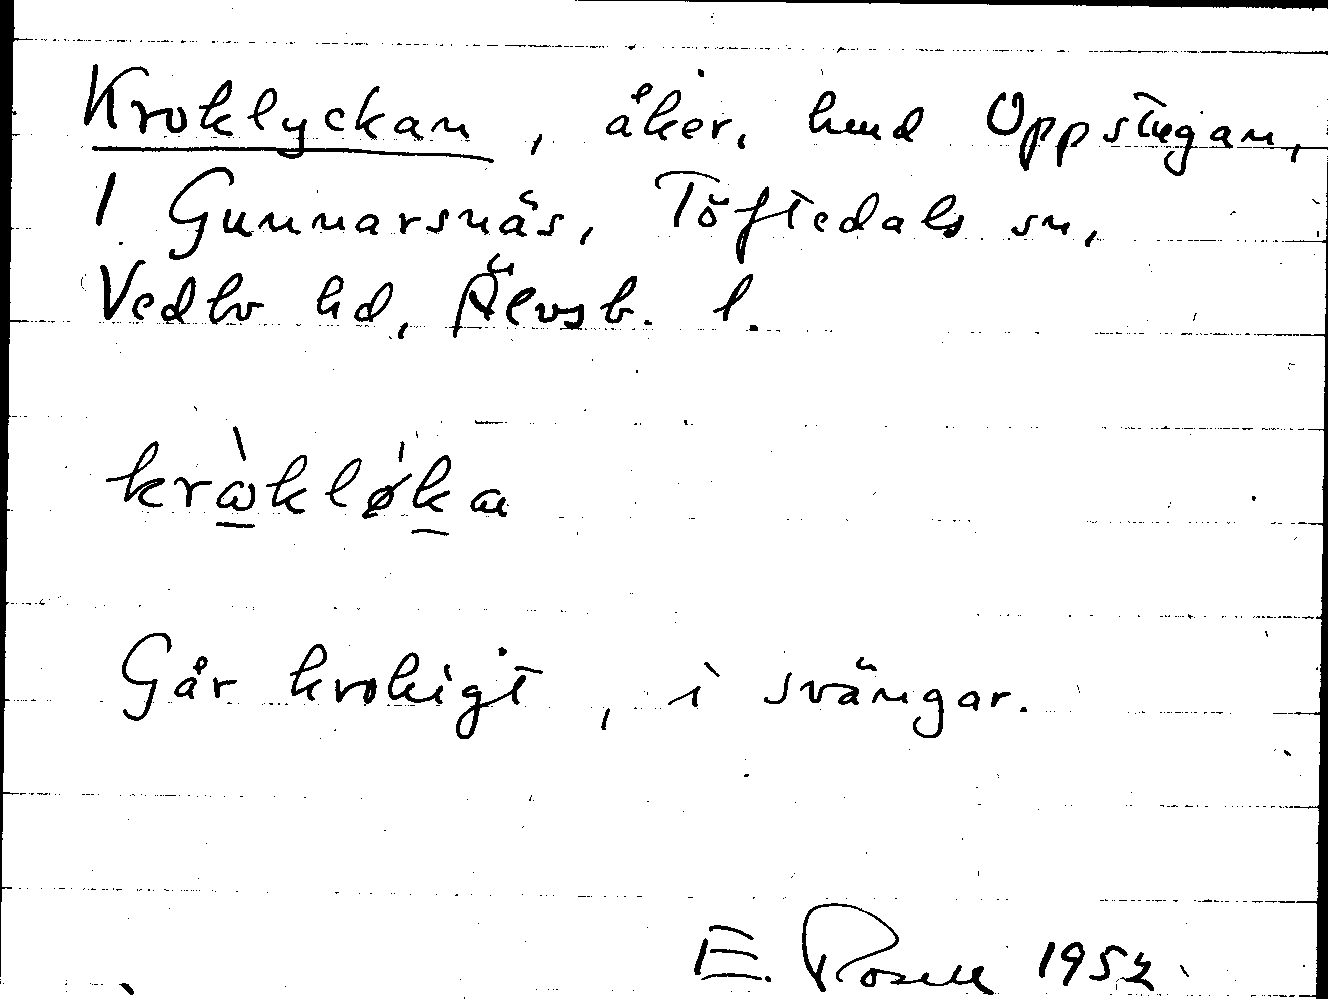 Kroklyckan, åker, hmd Oppstugan,
1 Gunnarsnäs, Töftedals sn,
Vedbo hd, Älvsb. l.
krὼklø̀ka
Går krokigt, i svängar.
E. Rosell 1952